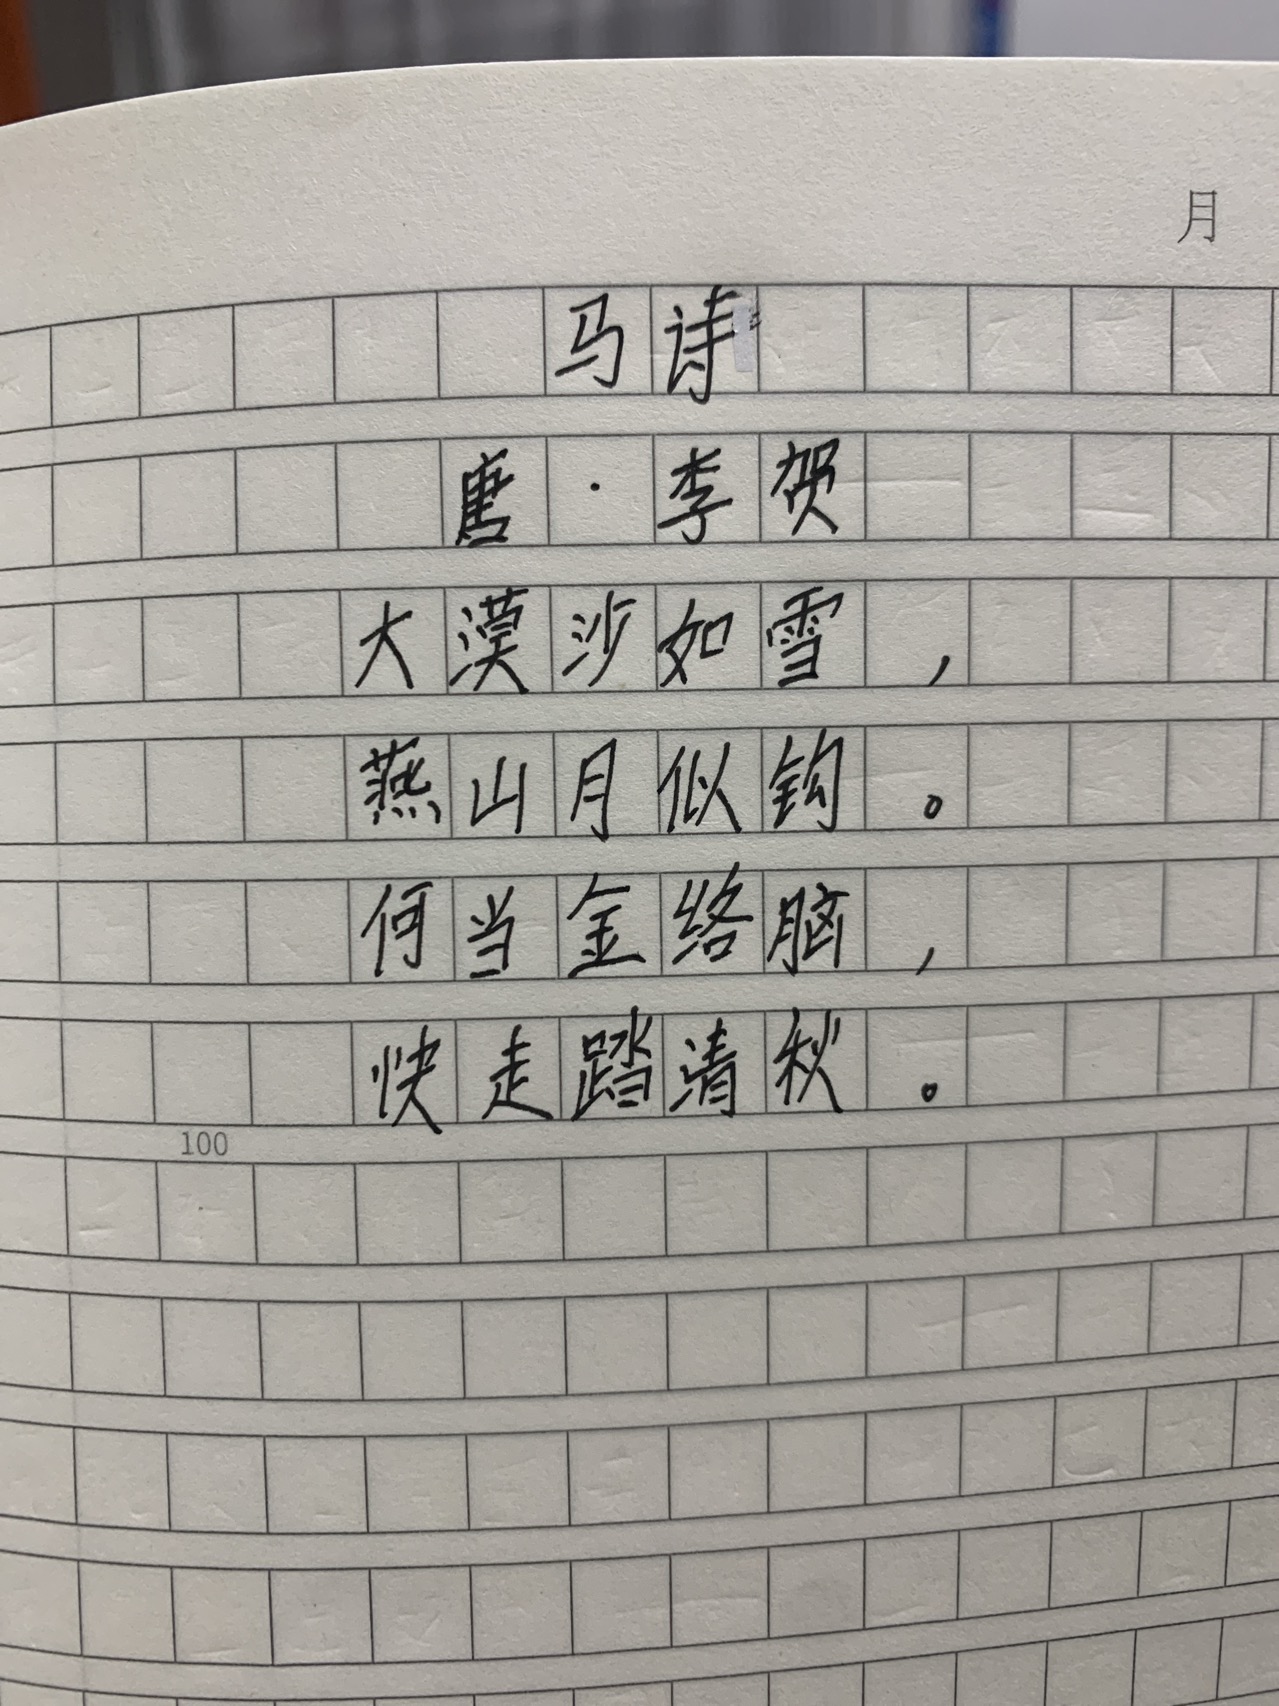 月
马诗
唐·李贺
大漠沙如雪，
燕山月似钩。
何当金络脑，
快走踏清秋。
100